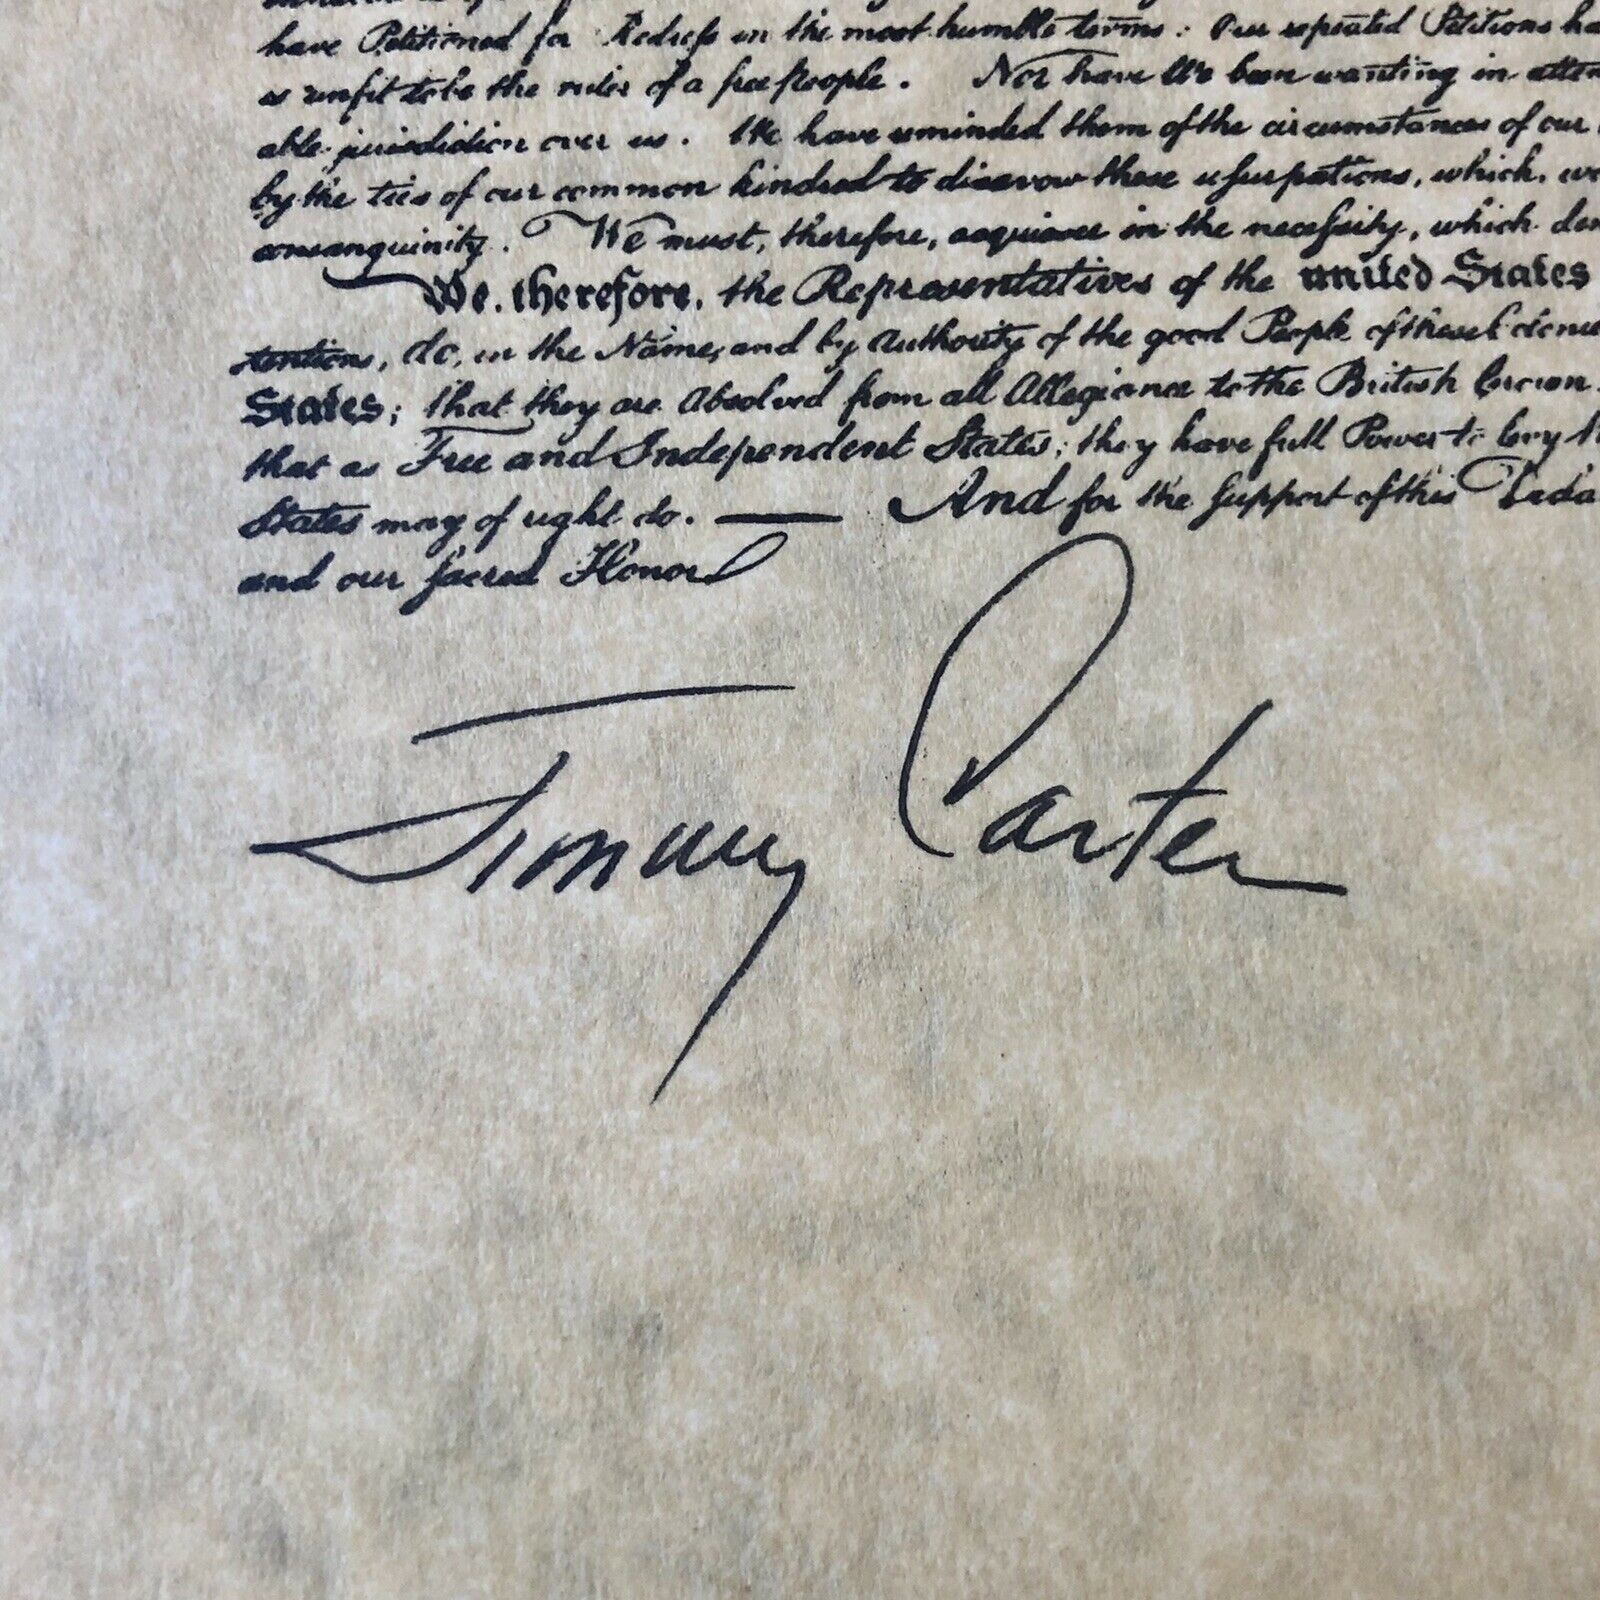 have Petitioned for Redress in the most humble terms: Our repeated Petitions ha
is unfit to be the ruler of a free People. Nor have We been wanting in atten
able jurisdiction over us. We have reminded them of the circumstances of our
by the ties of our common kindred to disavow these usurpations, which, wo
consanguinity. We must, therefore, acquiesce in the necessity, which den
We, therefore, the Representatives of the united States
tentions, do, in the Name, and by Authority of the good People of these Colonie
States; that they are Absolved from all Allegiance to the British Crown,
that as Free and Independent States, they have full Power to levy
States may of right do. — And for the support of this Decla
and our sacred Honor
Jimmy Carter